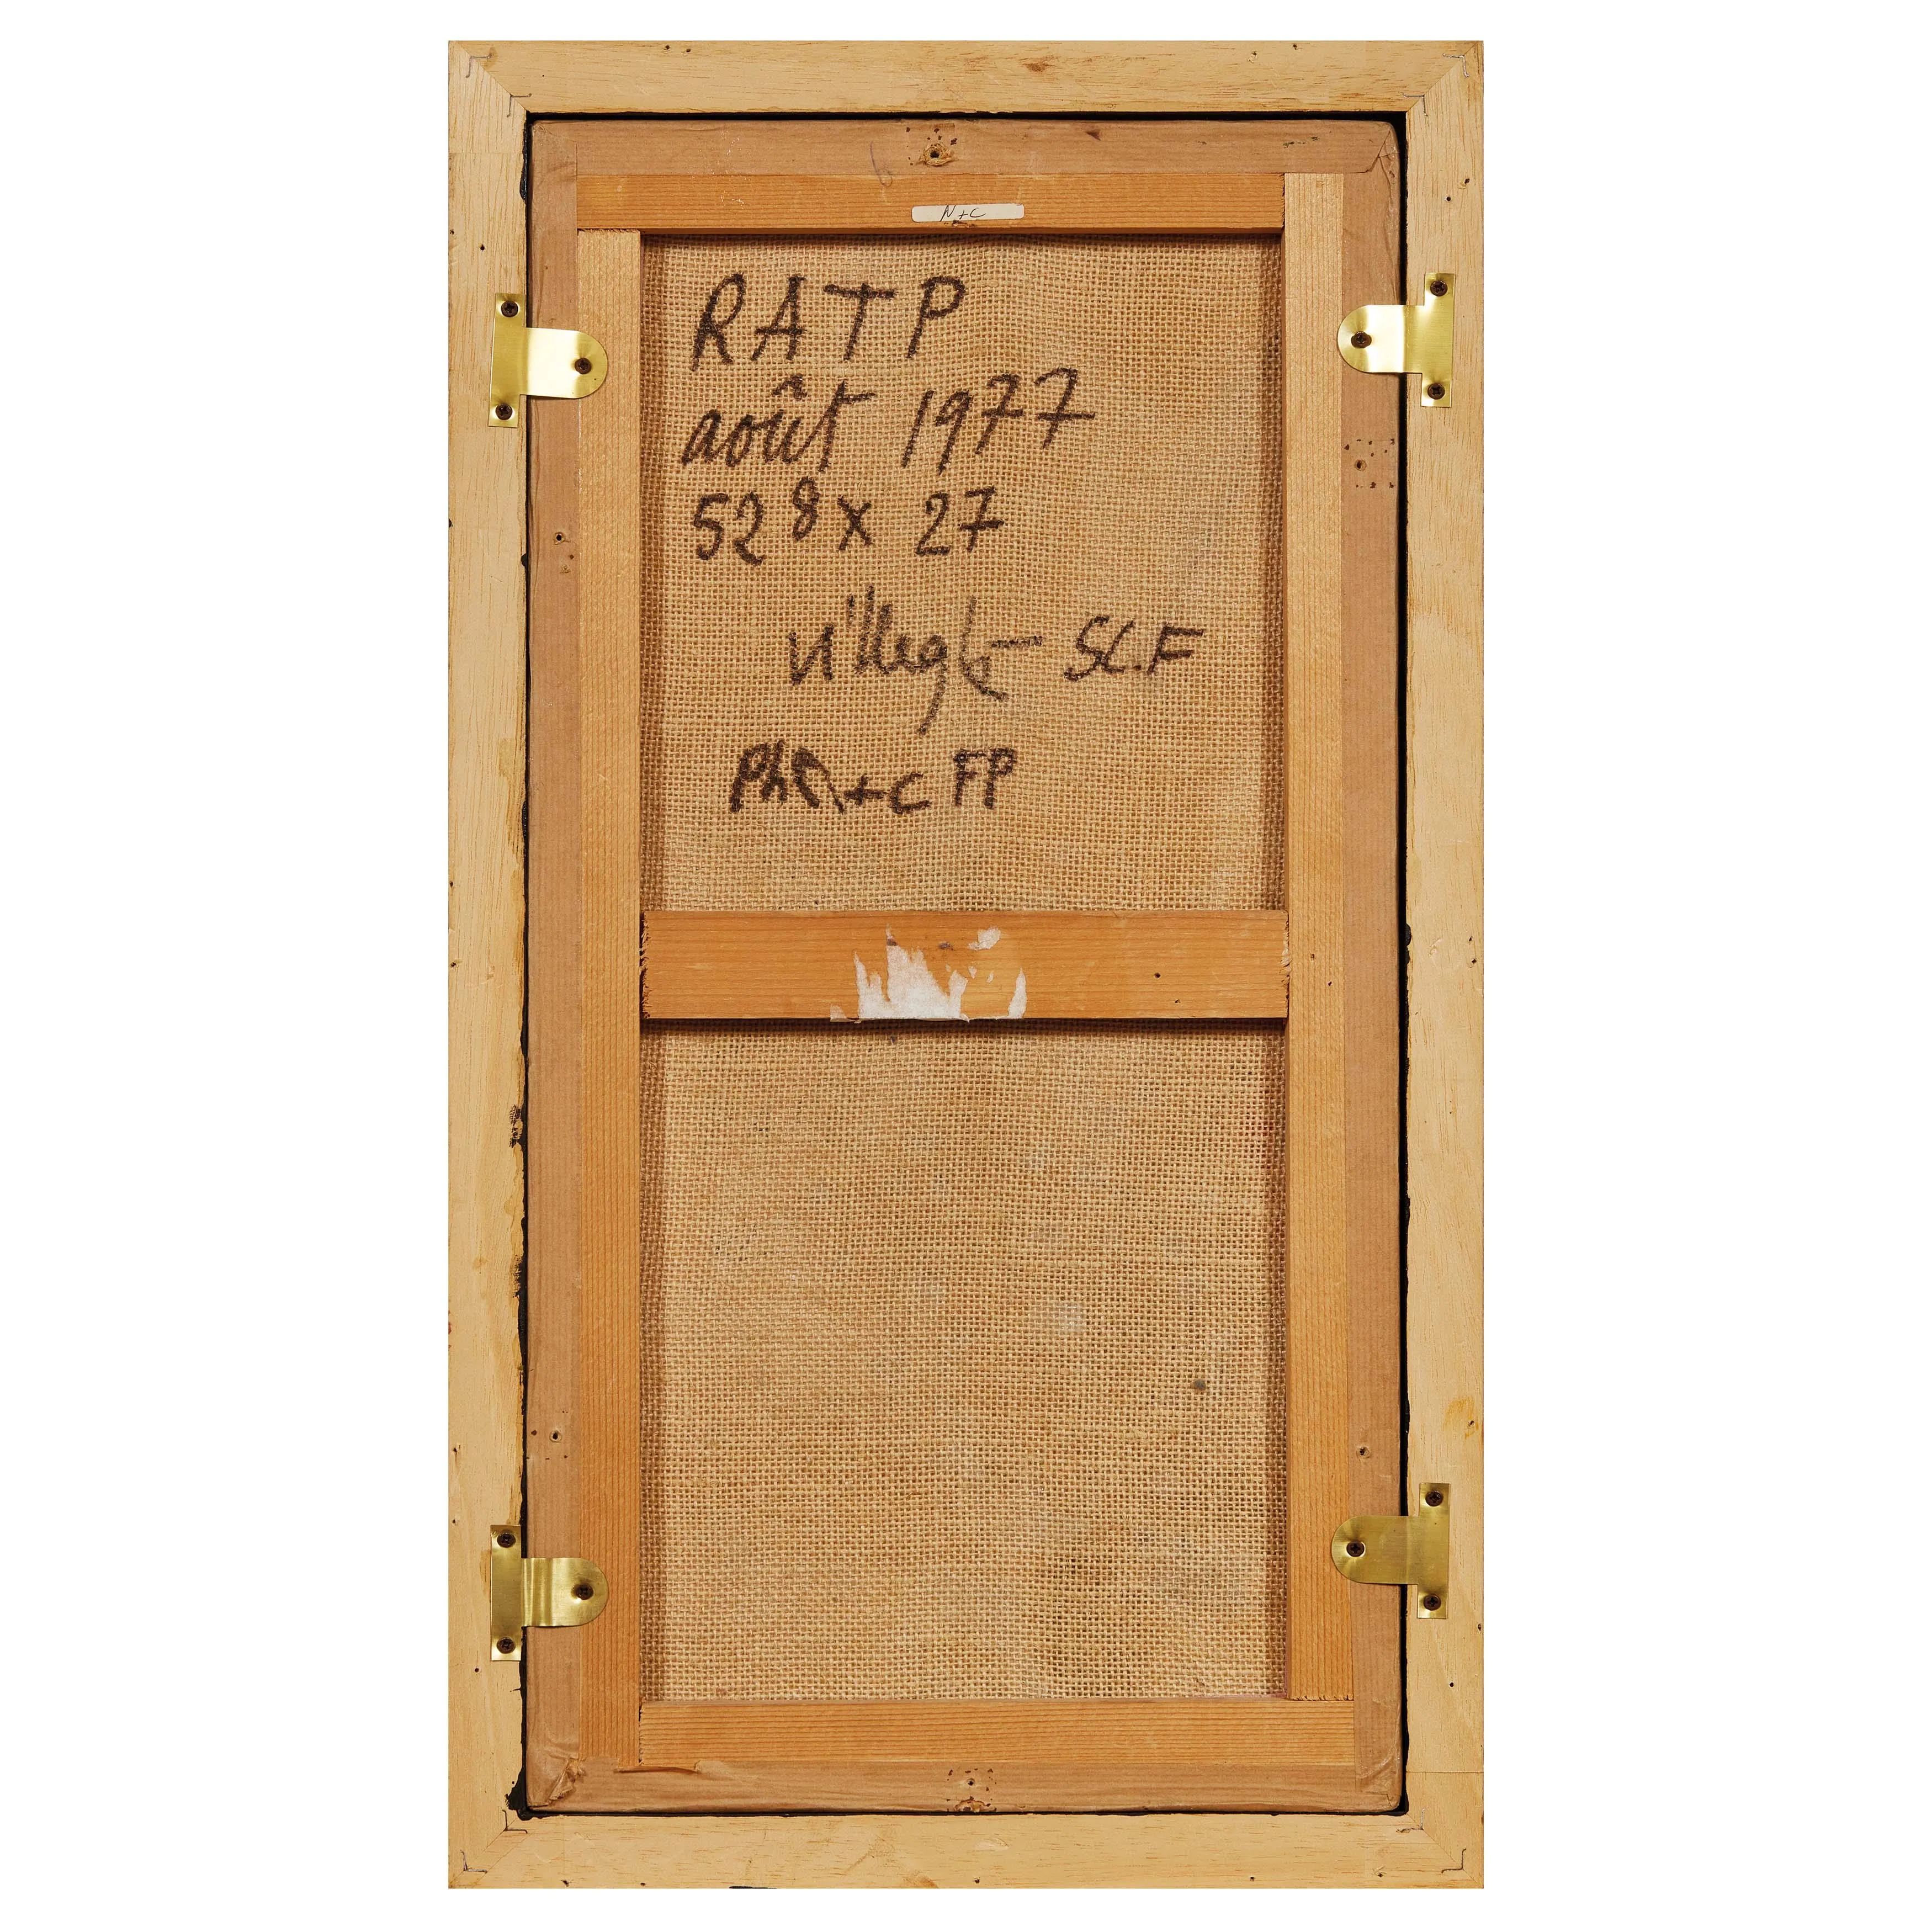 6
N+C
RATP
août 1977
52⁸ x 27
Villeglé SC.F
+C FP